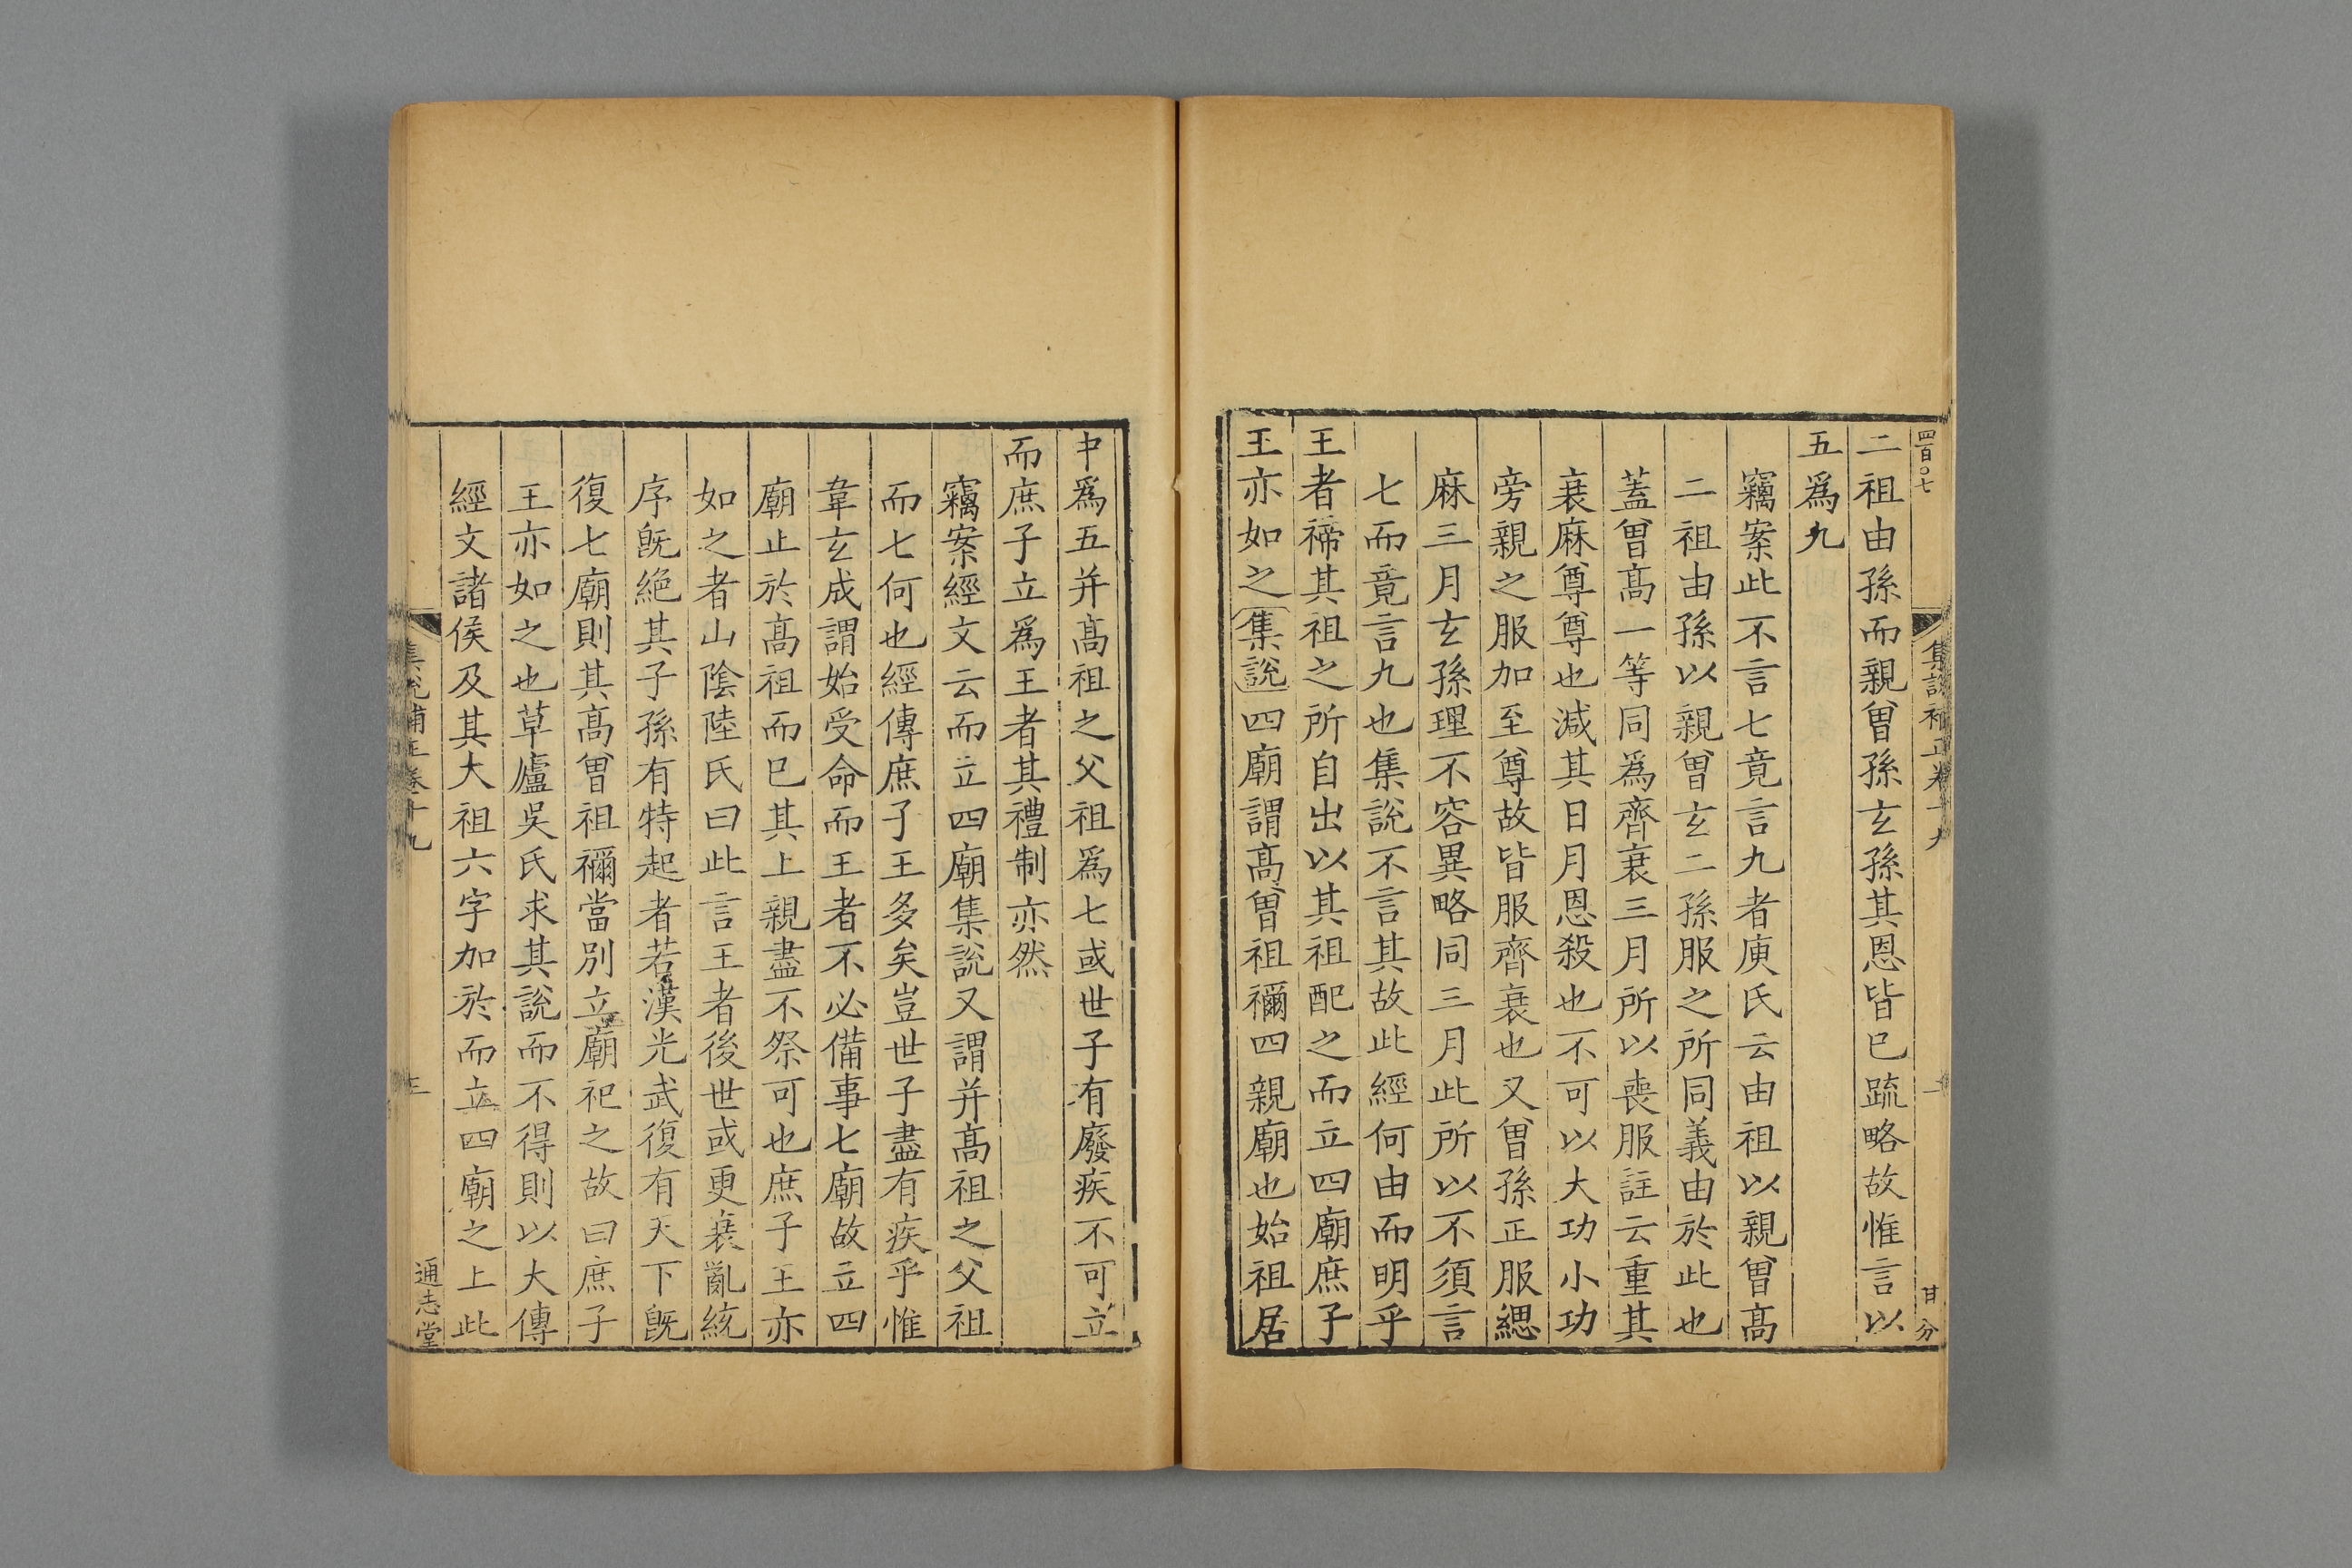 四百〇七
集說補正卷十九
二
甘分
二祖由孫而親曾孫玄孫其恩皆已䟽略故惟言以
五爲九
竊案此不言七竟言九者庾氏云由祖以親曾髙
二祖由孫以親曾玄二孫服之所同義由於此也
蓋曾髙一等同爲齊衰三月所以喪服註云重其
衰麻尊尊也減其日月恩殺也不可以大功小功
旁親之服加至尊故皆服齊衰也又曾孫正服緦
麻三月玄孫理不容異略同三月此所以不須言
七而竟言九也集說不言其故此經何由而明乎
王者禘其祖之所自出以其祖配之而立四廟庶子
王亦如之集說四廟謂髙曾祖禰四親廟也始祖居
中爲五并髙祖之父祖爲七或世子有廢疾不可立
而庶子立爲王者其禮制亦然
竊案經文云而立四廟集說又謂并髙祖之父祖
而七何也經傳庶子王多矣豈世子盡有疾乎惟
韋玄成謂始受命而王者不必備事七廟故立四
廟止於髙祖而已其上親盡不祭可也庶子王亦
如之者山隂陸氏曰此言王者後世或更衰亂統
序旣絶其子孫有特起者若漢光武復有天下旣
復七廟則其髙曾祖禰當別立廟祀之故曰庶子
王亦如之也草廬吳氏求其說而不得則以大傳
經文諸侯及其大祖六字加於而立四廟之上此
集說補正卷十九
通志堂